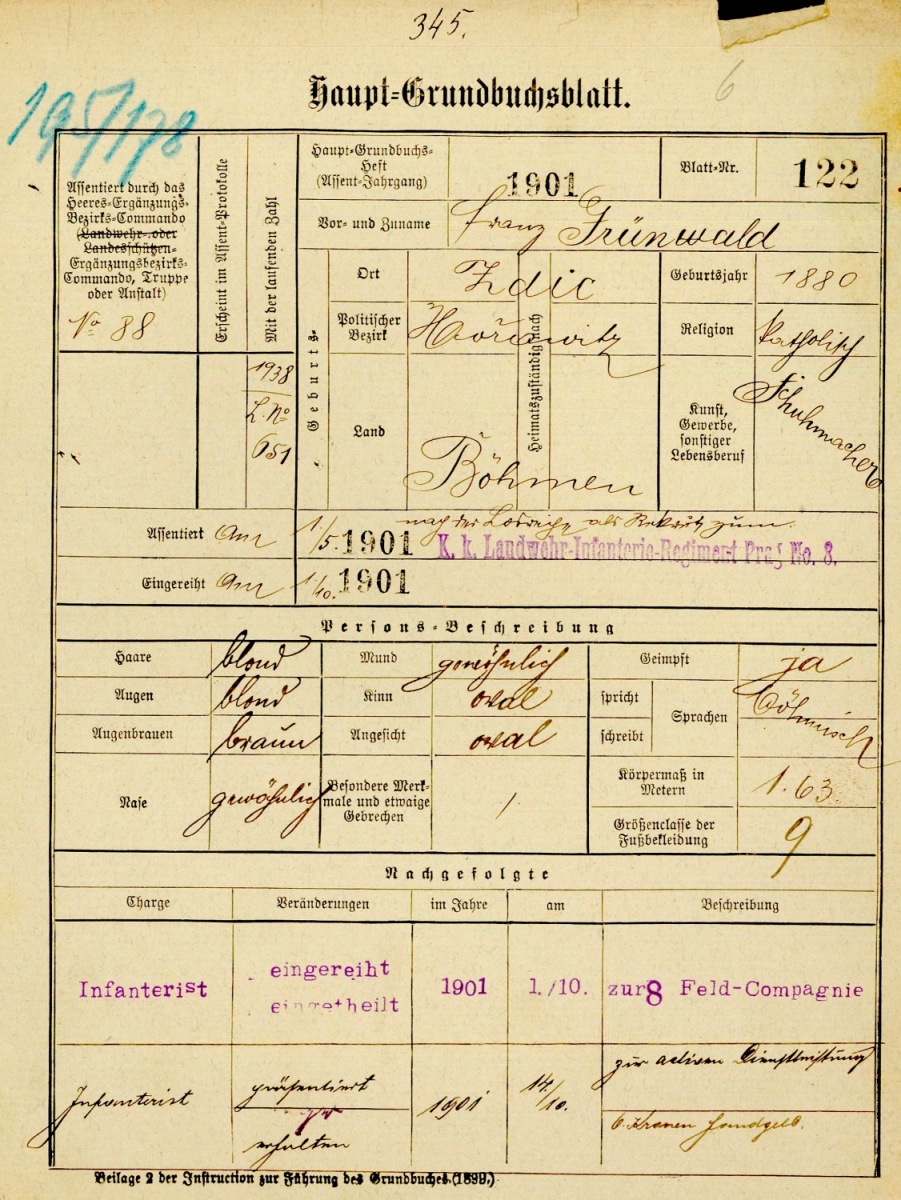 345.
6
195/178
Haupt=Grundbuchsblatt.
Assentiert durch das
Heeres=Ergänzungs=
Bezirks=Commando
(Landwehr= oder
Landesschützen=
Ergänzungsbezirks=
Commando, Truppe
oder Anstalt)
No 88
Erscheint im Assent=Protokolle
Mit der laufenden Zahl
1938
L. No
651
Haupt=Grundbuchs=
Heft
(Assent=Jahrgang)
1901
Blatt=Nr.
122
Vor= und Zuname
Franz Grünwald
Geburts=
Ort
Zdic
Politischer
Bezirk
Hořowitz
Land
Böhmen
Heimatszuständig nach
Geburtsjahr
1880
Religion
katholisch
Kunst,
Gewerbe,
sonstiger
Lebensberuf
Schuhmacher
Assentiert Am 1/5. 1901
nach der als Rekrut zum
K. k. Landwehr-Infanterie-Regiment Prag No. 8.
Eingereiht Am 1/10. 1901
Persons=Beschreibung
Haare blond
Augen blond
Augenbrauen braun
Nase gewöhnlich
Mund gewöhnlich
Kinn oval
Angesicht oval
Besondere Merk=
male und etwaige
Gebrechen
/
Geimpft ja
spricht
schreibt
Sprachen
böhmisch
Körpermaß in
Metern
1.63
Größenclasse der
Fußbekleidung
9
Nachgefolgte
Charge Veränderungen im Jahre am Beschreibung
Infanterist eingereiht 1901 1./10. zur 8 Feld-Compagnie
eingetheilt
Infanterist präsentiert 1901 14/10. zur activen Dienstleistung
erhalten 6 Kronen Handgeld.
Beilage 2 der Instruction zur Führung des Grundbuches (1899.)